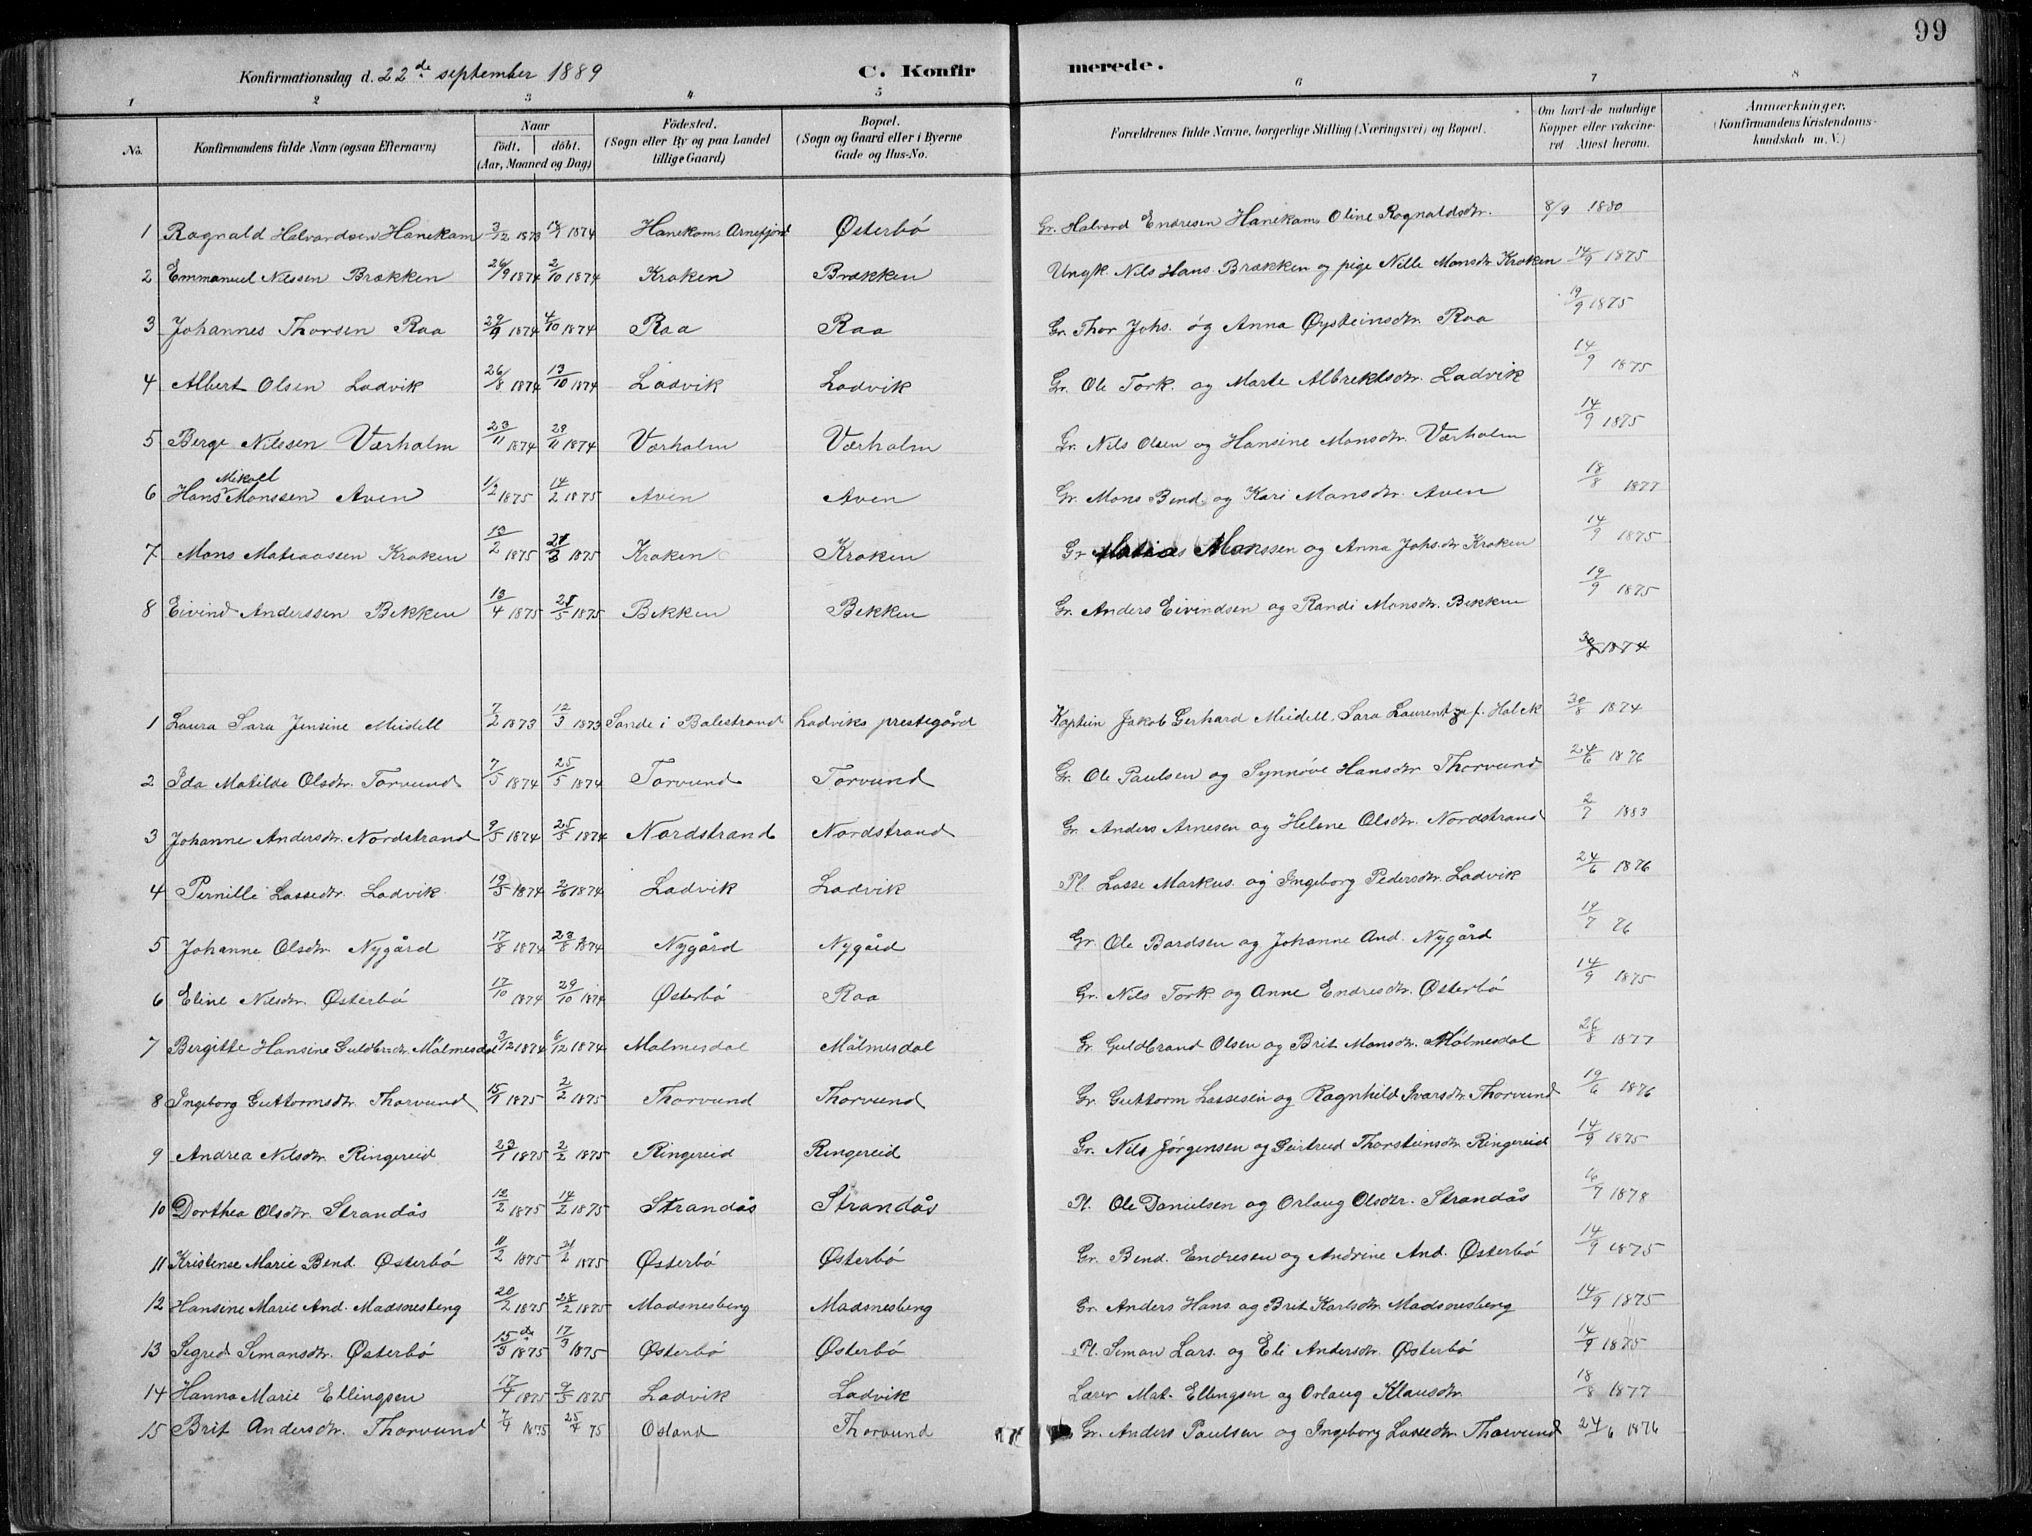 99
Konfirmationsdag d. 22de september 1889 C. Konfirmerede.
1 2 3 4 5 6 7 8
No. Konfirmandens fulde Navn (ogsaa Efternavn) Naar födt. döbt. (Aar, Maaned og Dag) Födested. (Sogn eller By og paa Landet tillige Gaard) Bopæl. (Sogn og Gaard eller i Byerne Gade og Hus-No. Forældrenes fulde Navne, borgerlige Stilling (Næringsvei) og Bopæl. Om havt de naturlige Kopper eller vakcineret Attest herom. Anmærkninger. (Konfirmandens Kristendomskundskab m. V.)
1 Ragnald Halvardsen Hanekam 3/12 1873 1874 Hanekam, Arnefjord Østerbö Gr. Halvard Endresen Hanekam, Oline Ragnaldsdtr. 8/9 1880
2 Emmanuel Nilssen Brækken 26/9 1874 2/10 1874 Kraken Brækken Ungk. Nils Hans. Brækken og pige Nille Monsdtr. Kraken 14/9 1875
3 Johannes Thorsen Raa 29/9 1874 4/10 1874 Raa Raa Gr. Thor Johs. og Anna Øysteinsdtr. Raa 19/9 1875
4 Albert Olsen Ladvik 26/8 1874 13/10 1874 Ladvik Ladvik Gr. Ole Tork. og Marte Albrektsdtr. Ladvik 14/9 1875
5 Berge Nilssen Værholm 23/11 1874 29/11 1874 Værholm Værholm Gr. Nils Olsen og Hansine Monsdtr. Værholm 14/9 1875
6 Hans Mikael Monssen Aven 1/2 1875 14/2 1875 Aven Aven Gr. Mons Bend. og Kari Monsdtr. Aven 18/8 1877
7 Mons Matiaassen Kraken 13/2 1875 21/3 1875 Kraken Kraken Gr. Matias Monssen og Anna Johs.dtr Kraken 14/9 1875
8 Eivind Anderssen Bekken 13/4 1875 1875 Bekken Bekken Gr. Anders Eivindsen og Randi Monsdtr. Bekken 19/9 1875
30/8 1874
1 Laura Sara Jensine Meidell 7/2 1873 12/3 1873 Sande i Balestrand Ladviks prestegård Kaptein Jakob Gerhard Meidell, Sara Laurentza f. Halck 30/8 1874
2 Ida Matilde Olsdtr. Torvund 7/5 1874 25/5 1874 Torvund Torvund Gr. Ole Paulsen og Synnöve Hansdtr Thorvund 24/6 1876
3 Johanne Andersdtr. Nordstrand 9/5 1874 25/5 1874 Nordstrand Nordstrand Gr. Anders Arnesen og Helene Olsdtr. Nordstrand 2/7 1883
4 Pernille Lassedtr. Ladvik 19/5 1874 2/6 1874 Ladvik Ladvik Pl. Lasse Markus. og Ingeborg Pedersdtr. Ladvik 24/6 1876
5 Johanne Olsdtr. Nygård 17/8 1874 23/8 1874 Nygård Nygård Gr. Ole Bardsen og Johanne And. Nygård 19/7 76
6 Eline Nilsdtr. Østerbö 17/10 1874 29/10 1874 Østerbö Raa Gr. Nils Tork. og Anne Endresdtr. Østerbö 14/9 1875
7 Bergitte Hansine Guldbr.dtr. Målmesdal 3/12 1874 6/12 1874 Malmesdal Målmesdal Gr. Guldbrand Olsen og Brit Monsdtr. Målmesdal 26/8 1877
8 Ingeborg Guttormsdtr. Thorvund 15/1 1875 2/2 1875 Thorvund Thorvund Gr. Guttorm Lassesen og Ragnhild Ivarsdtr. Thorvund 19/6 1876
9 Andrea Nilsdtr. Ringereid 23/1 1875 2/2 1875 Ringereid Ringereid Gr. Nils Jörgensen og Geirtrud Thorsteinsdtr. Ringereid 14/9 1875
10 Dorthea Olsdtr. Strandås 12/2 1875 14/2 1875 Strandås Strandås Pl. Ole Danielsen og Orlaug Olsdtr. Strandås 16/7 1878
11 Kristense Marie Bend. Østerbö 11/2 1875 21/2 1875 Østerbö Østerbö Gr. Bend. Endresen og Andrine And. Østerbö 14/9 1875
12 Hansine Marie And. Madsnesberg 20/2 1875 28/2 1875 Madsnesberg Madsnesberg Gr. Anders Hans. og Brit Karlsdtr. Madsnesberg 14/9 1875
13 Sigrid Simonsdtr. Østerbö 15/3 1875 17/3 1875 Østerbö Østerbö Pl. Simon Lars. og Eli Andersdtr. Østerbö 14/9 1875
14 Hanna Marie Ellingsen 17/4 1875 9/5 1875 Ladvik Ladvik Lærer Mat. Ellingsen og Orlaug Klausdtr. 18/8 1877
15 Brit Andersdtr. Thorvund 7/4 1875 25/4 75 Osland Thorvund Gr. Anders Paulsen og Ingeborg Lassedtr. Thorvund 24/6 1876